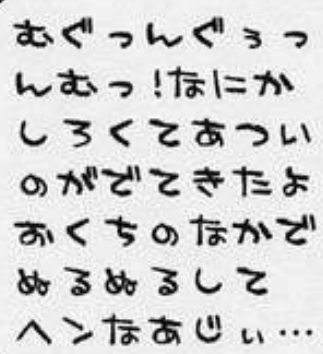 むぐっんぐぅっ
んむっ!なにか
しろくてあつい
のがでてきたよ
おくちのなかで
ぬるぬるして
ヘンなあじぃ…